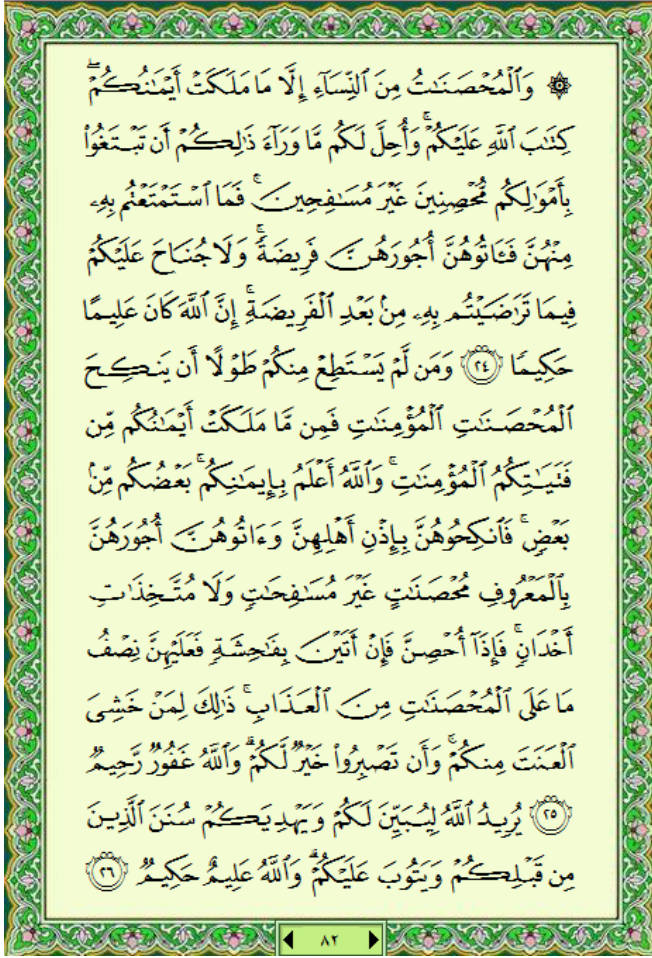 ۞ وَٱلْمُحْصَنَٰتُ مِنَ ٱلنِّسَآءِ إِلَّا مَا مَلَكَتْ أَيْمَٰنُكُمْ ۖ
كِتَٰبَ ٱللَّهِ عَلَيْكُمْ ۚ وَأُحِلَّ لَكُم مَّا وَرَآءَ ذَٰلِكُمْ أَن تَبْتَغُوا۟
بِأَمْوَٰلِكُم مُّحْصِنِينَ غَيْرَ مُسَٰفِحِينَ ۚ فَمَا ٱسْتَمْتَعْتُم بِهِۦ
مِنْهُنَّ فَـَٔاتُوهُنَّ أُجُورَهُنَّ فَرِيضَةً ۚ وَلَا جُنَاحَ عَلَيْكُمْ
فِيمَا تَرَٰضَيْتُم بِهِۦ مِنۢ بَعْدِ ٱلْفَرِيضَةِ ۚ إِنَّ ٱللَّهَ كَانَ عَلِيمًا
حَكِيمًا ٢٤ وَمَن لَّمْ يَسْتَطِعْ مِنكُمْ طَوْلًا أَن يَنكِحَ
ٱلْمُحْصَنَٰتِ ٱلْمُؤْمِنَٰتِ فَمِن مَّا مَلَكَتْ أَيْمَٰنُكُم مِّن
فَتَيَٰتِكُمُ ٱلْمُؤْمِنَٰتِ ۚ وَٱللَّهُ أَعْلَمُ بِإِيمَٰنِكُم ۚ بَعْضُكُم مِّنۢ
بَعْضٍ ۚ فَٱنكِحُوهُنَّ بِإِذْنِ أَهْلِهِنَّ وَءَاتُوهُنَّ أُجُورَهُنَّ
بِٱلْمَعْرُوفِ مُحْصَنَٰتٍ غَيْرَ مُسَٰفِحَٰتٍ وَلَا مُتَّخِذَٰتِ
أَخْدَانٍ ۚ فَإِذَآ أُحْصِنَّ فَإِنْ أَتَيْنَ بِفَٰحِشَةٍ فَعَلَيْهِنَّ نِصْفُ
مَا عَلَى ٱلْمُحْصَنَٰتِ مِنَ ٱلْعَذَابِ ۚ ذَٰلِكَ لِمَنْ خَشِىَ
ٱلْعَنَتَ مِنكُمْ ۚ وَأَن تَصْبِرُوا۟ خَيْرٌ لَّكُمْ ۗ وَٱللَّهُ غَفُورٌ رَّحِيمٌ
٢٥ يُرِيدُ ٱللَّهُ لِيُبَيِّنَ لَكُمْ وَيَهْدِيَكُمْ سُنَنَ ٱلَّذِينَ
مِن قَبْلِكُمْ وَيَتُوبَ عَلَيْكُمْ ۗ وَٱللَّهُ عَلِيمٌ حَكِيمٌ ٢٦
٨٢